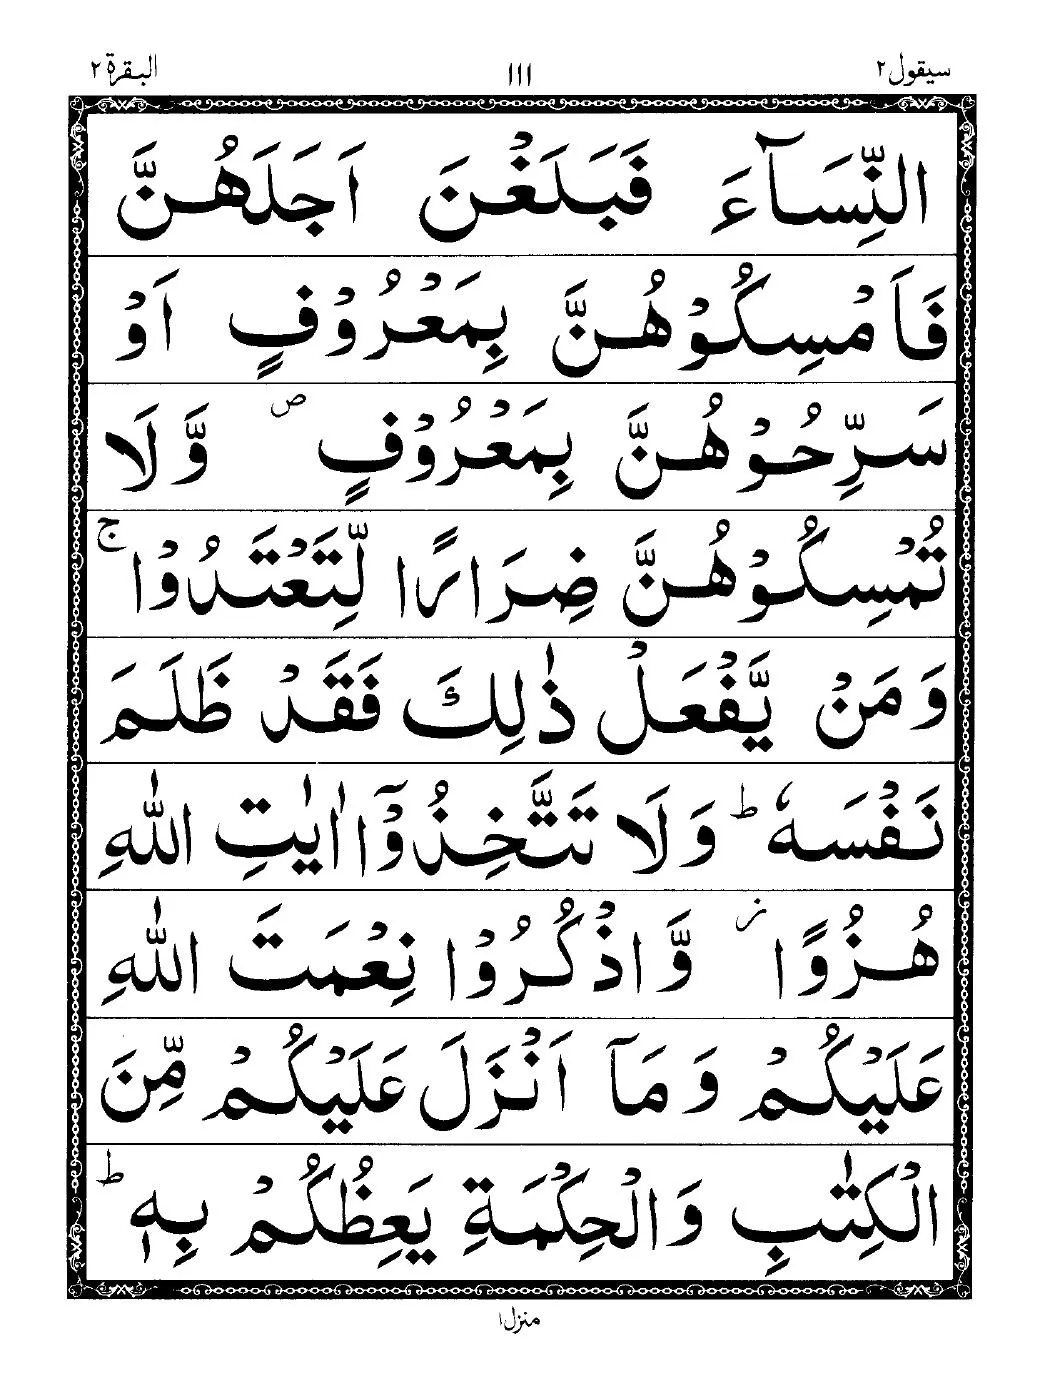 سيقول ٢
١١١
البقرة ٢
النِّسَآءَ فَبَلَغْنَ اَجَلَهُنَّ
فَاَمْسِكُوْهُنَّ بِمَعْرُوْفٍ اَوْ
سَرِّحُوْهُنَّ بِمَعْرُوْفٍ ۪ وَّلَا
تُمْسِكُوْهُنَّ ضِرَارًا لِّتَعْتَدُوْا ۚ
وَمَنْ يَّفْعَلْ ذٰلِكَ فَقَدْ ظَلَمَ
نَفْسَهٗ ؕ وَلَا تَتَّخِذُوْۤا اٰيٰتِ اللّٰهِ
هُزُوًا ؗ وَّاذْكُرُوْا نِعْمَتَ اللّٰهِ
عَلَيْكُمْ وَمَاۤ اَنْزَلَ عَلَيْكُمْ مِّنَ
الْكِتٰبِ وَالْحِكْمَةِ يَعِظُكُمْ بِهٖ ؕ
منزل ١